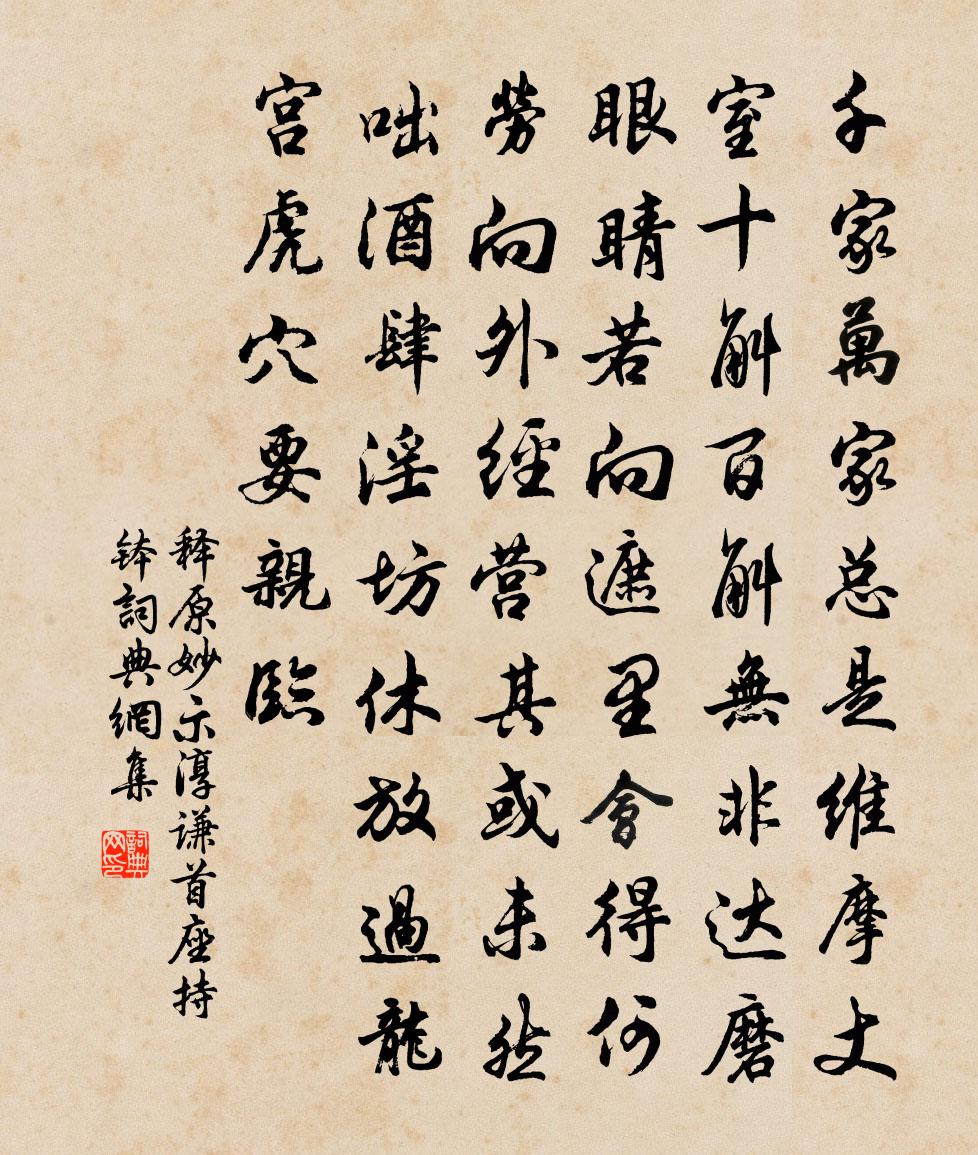 千家萬家总是维摩丈
室十斛百斛無非达磨
眼睛若向遮里會得何
勞向外經营其或未然
咄酒肆淫坊休放過龍
宫虎穴要親臨
释原妙示淳谦首座持
钵詞典網集
詞典網印